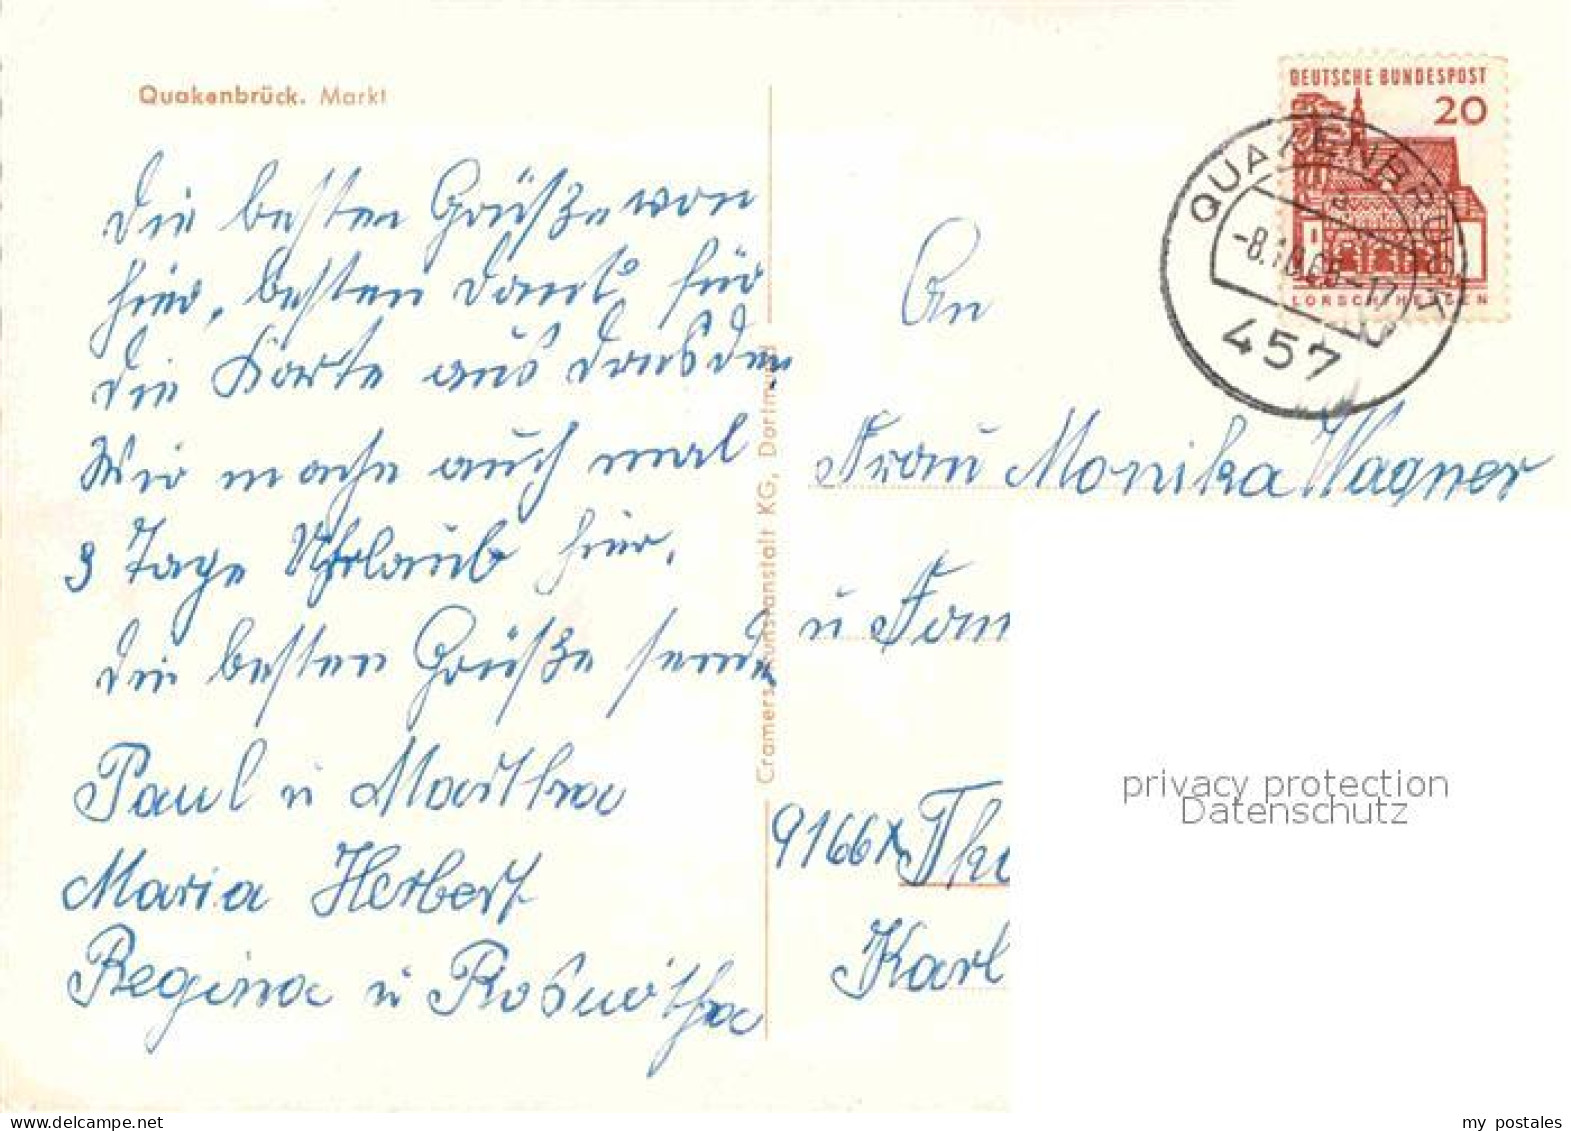 Quakenbrück. Markt
Die besten Grüße von
hier, besten Dank für
die Karte aus Dresden
Wir mache auch mal
3 Tage Uhrlaub hier.
die besten Grüße sende
Paul u Martha
Maria Herbert
Regina u Roswitha
Cramers Kunstanstalt KG, Dortmund
DEUTSCHE BUNDESPOST
20
LORSCH/HESSEN
QUAKENBRÜCK
a
457
An
Frau Monika Wagner
u Fam
9166
Karl
privacy protection
Datenschutz
my postales